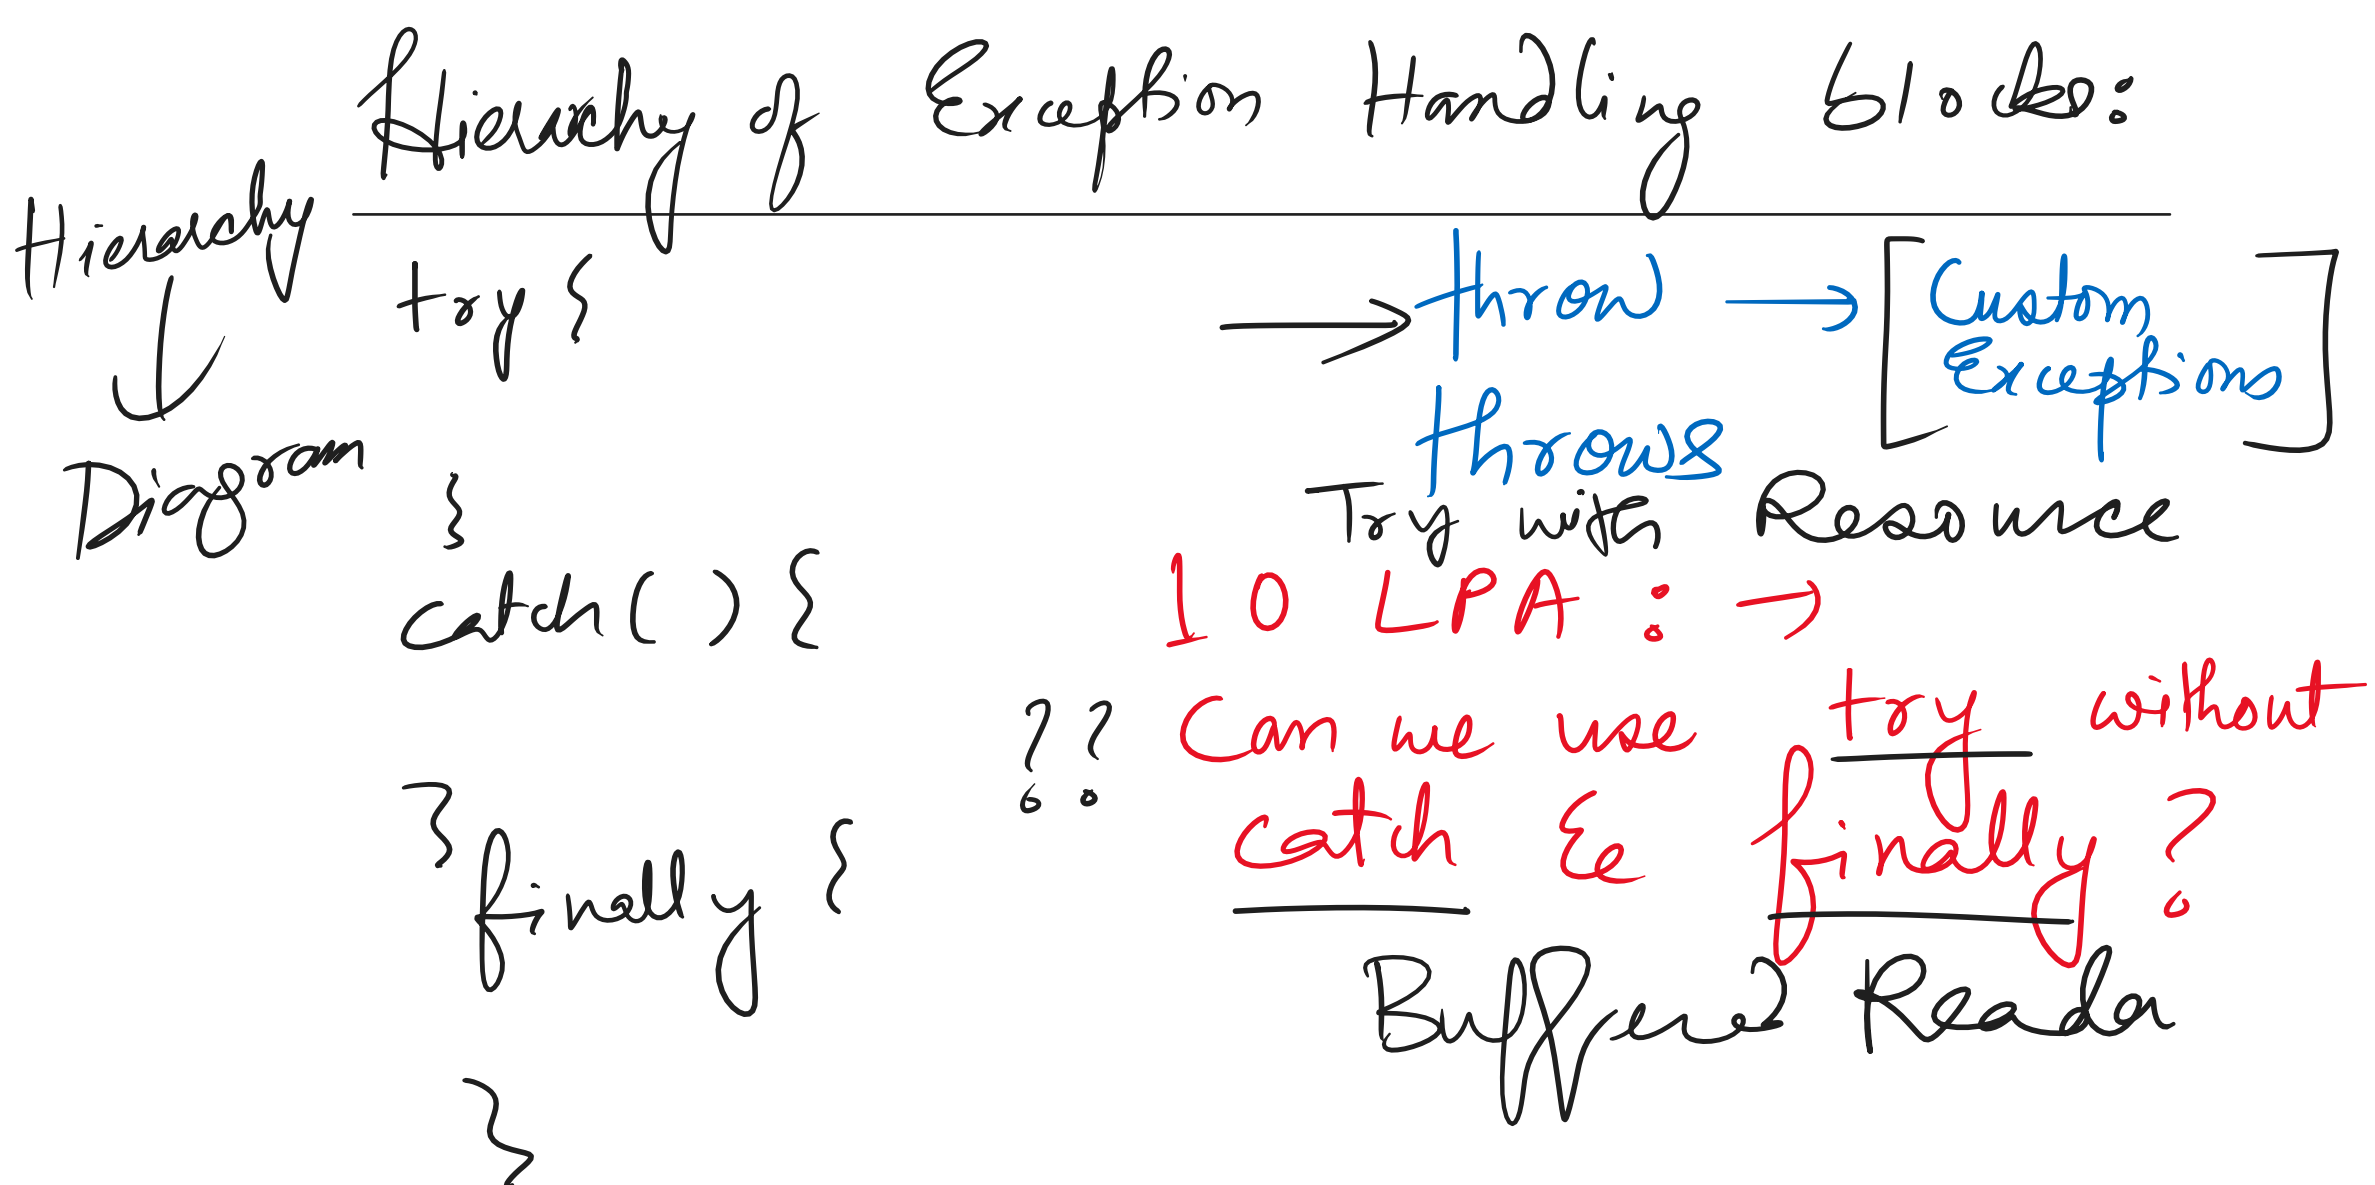 Hierarchy of Exception Handling blocks:
Hierarchy
Diagram
try {
}
catch( ) {
}
finally {
}
throw → [Custom Exceptions]
throws
Try with Resource
10 LPA : →
?? Can we use try without
catch & finally ?
Buffered Reader